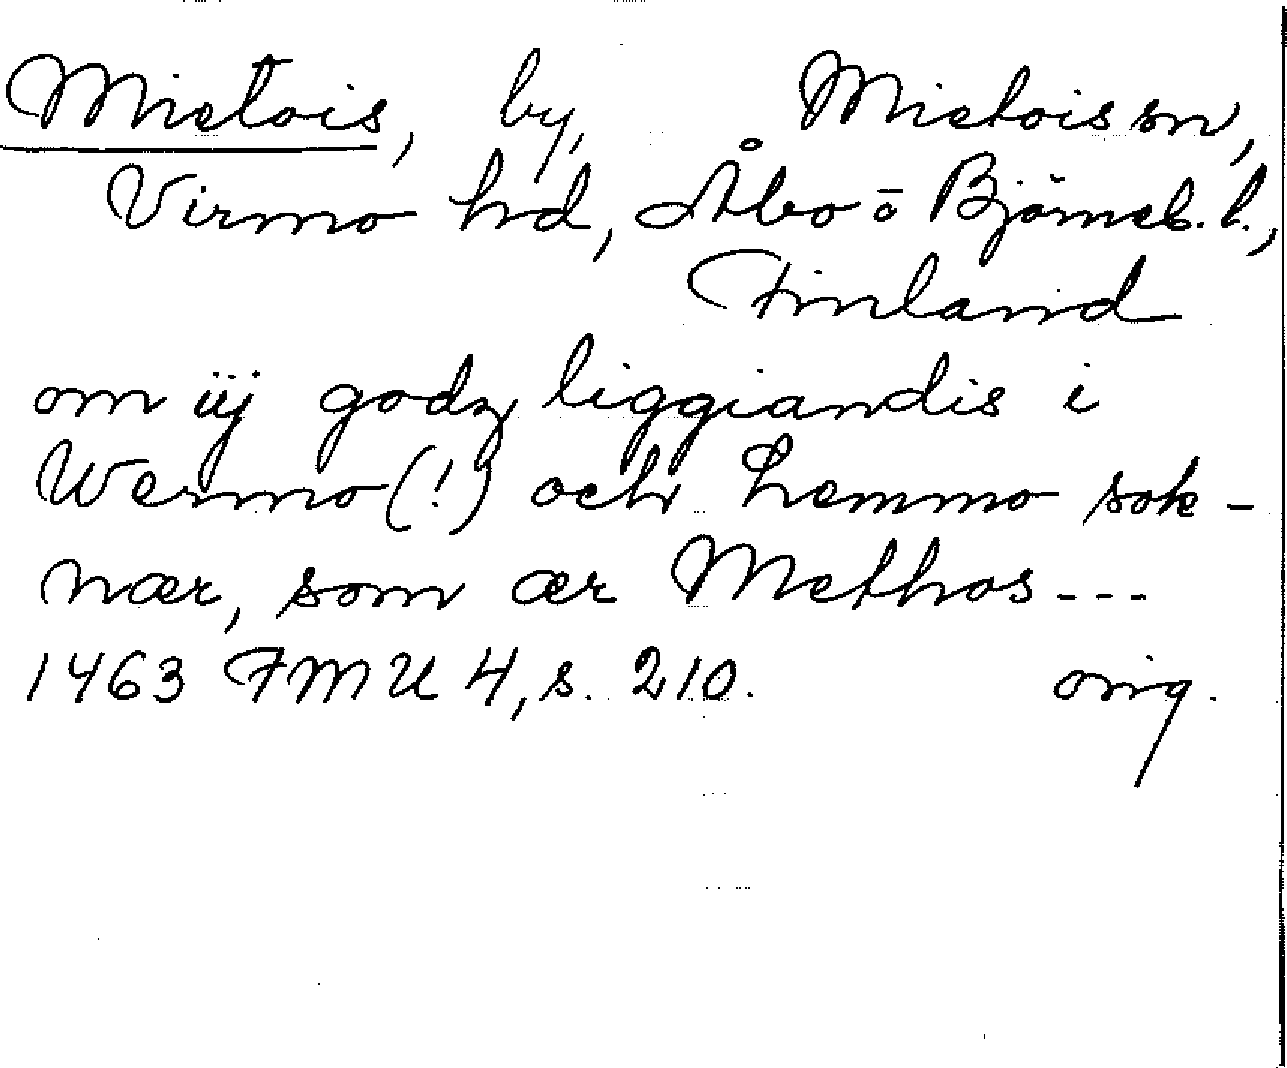 Mietois, by, Mietois sn,
Virmo hd, Åbo o Björneb. l.,
Finland
om iij godz liggiandis i
Wermo (!) och Lemmo sok-
nær, som ær Methos---
1463 FMU 4, s. 210. orig.